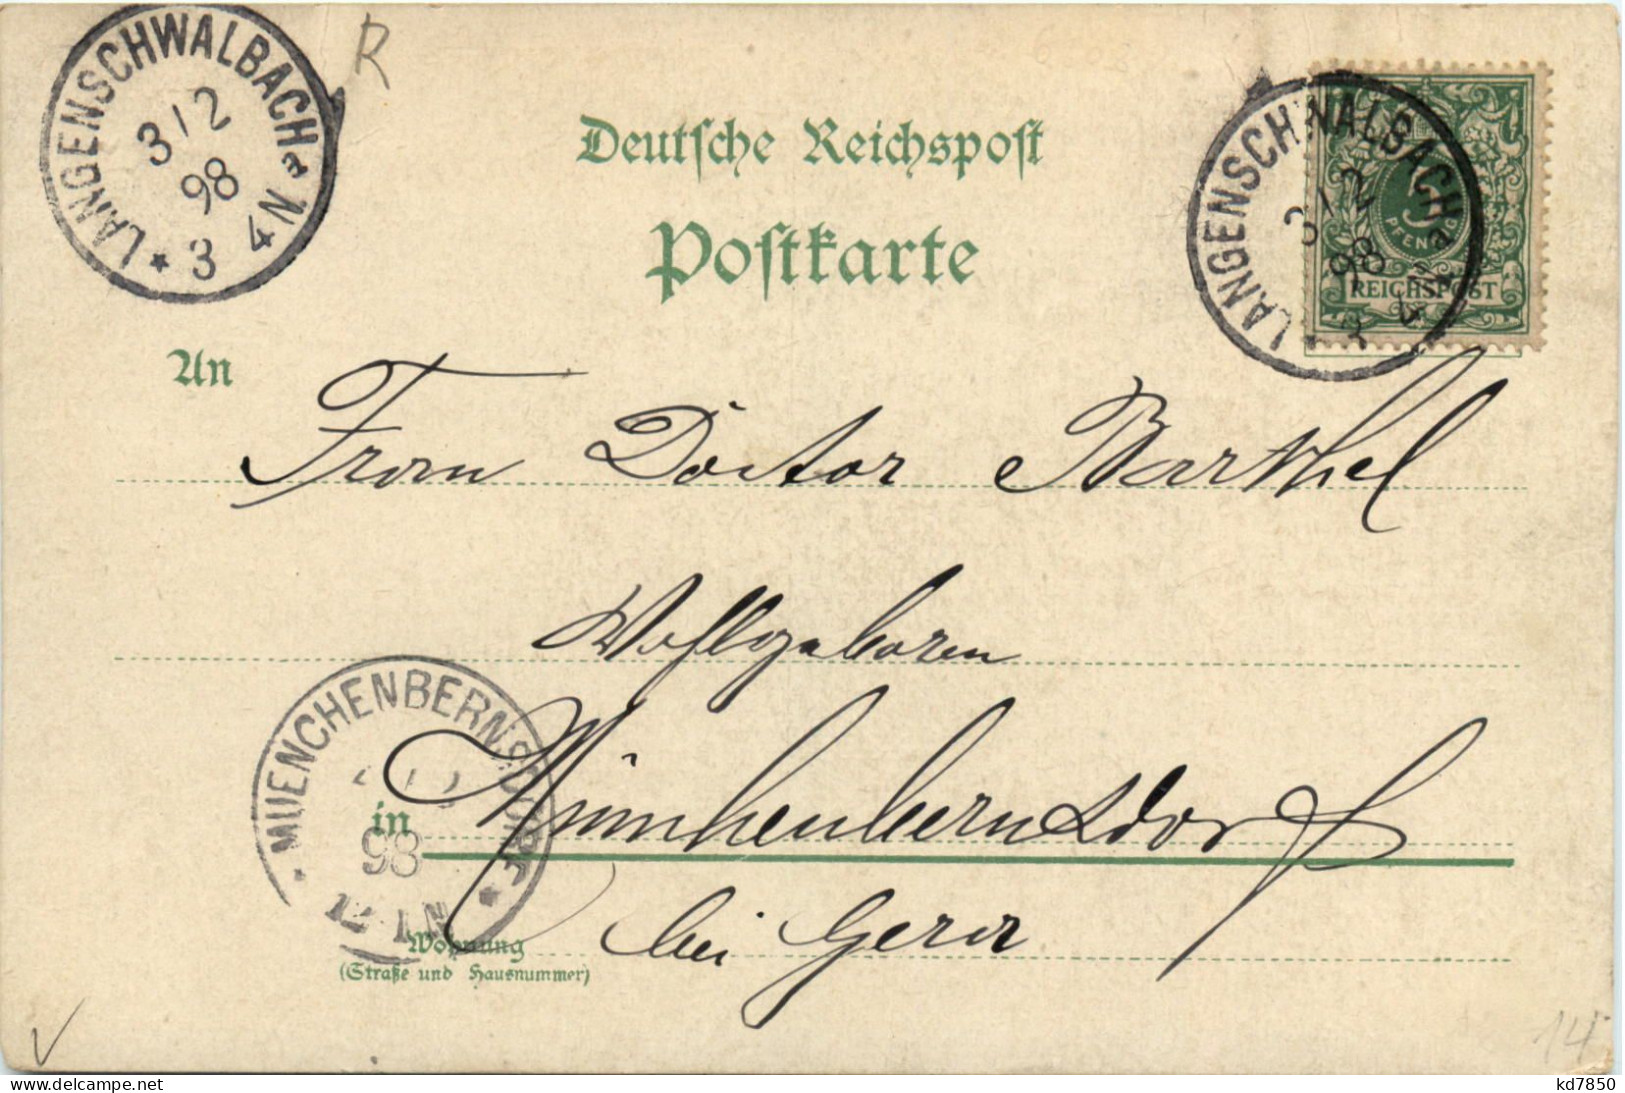 LANGENSCHWALBACH
3/2
98
3 4 N
a
R
Deutsche Reichspost
Postkarte
LANGENSCHWALBACH
3/2
98
a
5
PFENNIG
REICHSPOST
An
Frau Doctor Barthel
Wohlgeboren
MUENCHENBERNSDORF
98
12-1N
in
Münchenbernsdorf
Wohnung
(Straße und Hausnummer)
bei Gera
14
kd7850